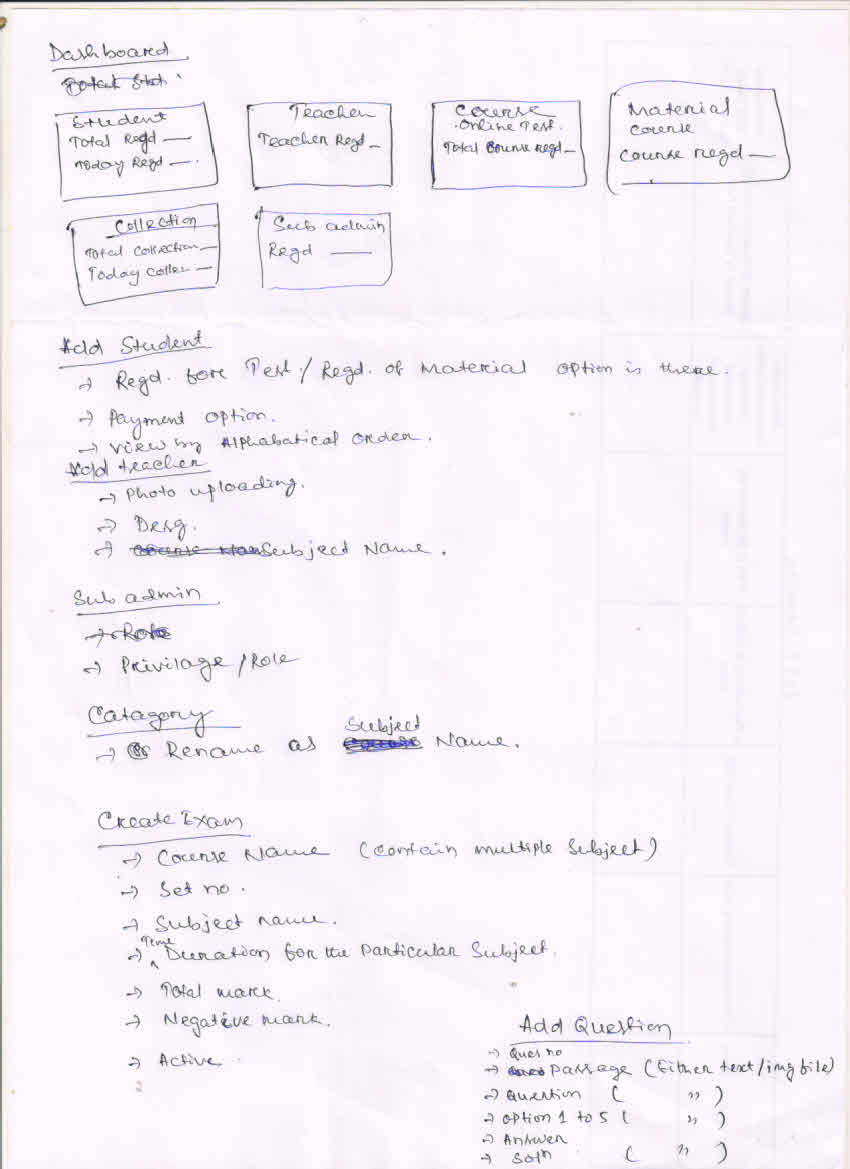 Dashboard
Total Stat
Student
Total Regd —
Today Regd —.
Teacher
Teacher Regd –
Course
.Online Test.
Total Course regd –
Material
course
course regd —
Collection
Total Collection –
Today Collec –
Sub admin
Regd —
Add Student
→ Regd. for Test / Regd. of Material option is there.
→ Payment option.
→ View by Alphabatical order.
Add teacher
→ Photo uploading.
→ Desg.
→ Subject Name.
Sub admin
→ Role
→ Privilage / Role
Catagory
→ Rename as Subject Name.
Create Exam
→ Course Name (contain multiple Subject)
→ Set no.
→ Subject name.
→ Time Duration for the Particular Subject.
→ Total mark.
→ Negative mark.
→ Active.
Add Question
→ Ques no
→ Passage (Either text/img file)
→ Question ( " )
→ option 1 to 5 ( " )
→ Answer
→ Soln ( " )